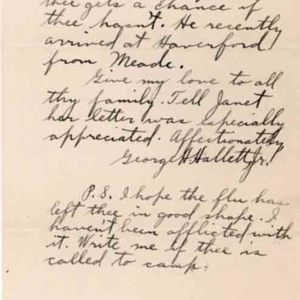 thee gets a chance if
thee hasn't. He recently
arrived at Haverford
from Meade.
Give my love to all
thy family. Tell Janet
her letter was especially
appreciated. Affectionately
George H Hallett Jr.
P.S. I hope the flu has
left thee in good shape. I
haven't been afflicted with
it. Write me if thee is
called to camp.